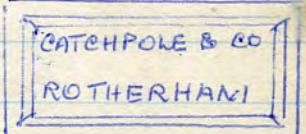 CATCHPOLE & CO
ROTHERHAM